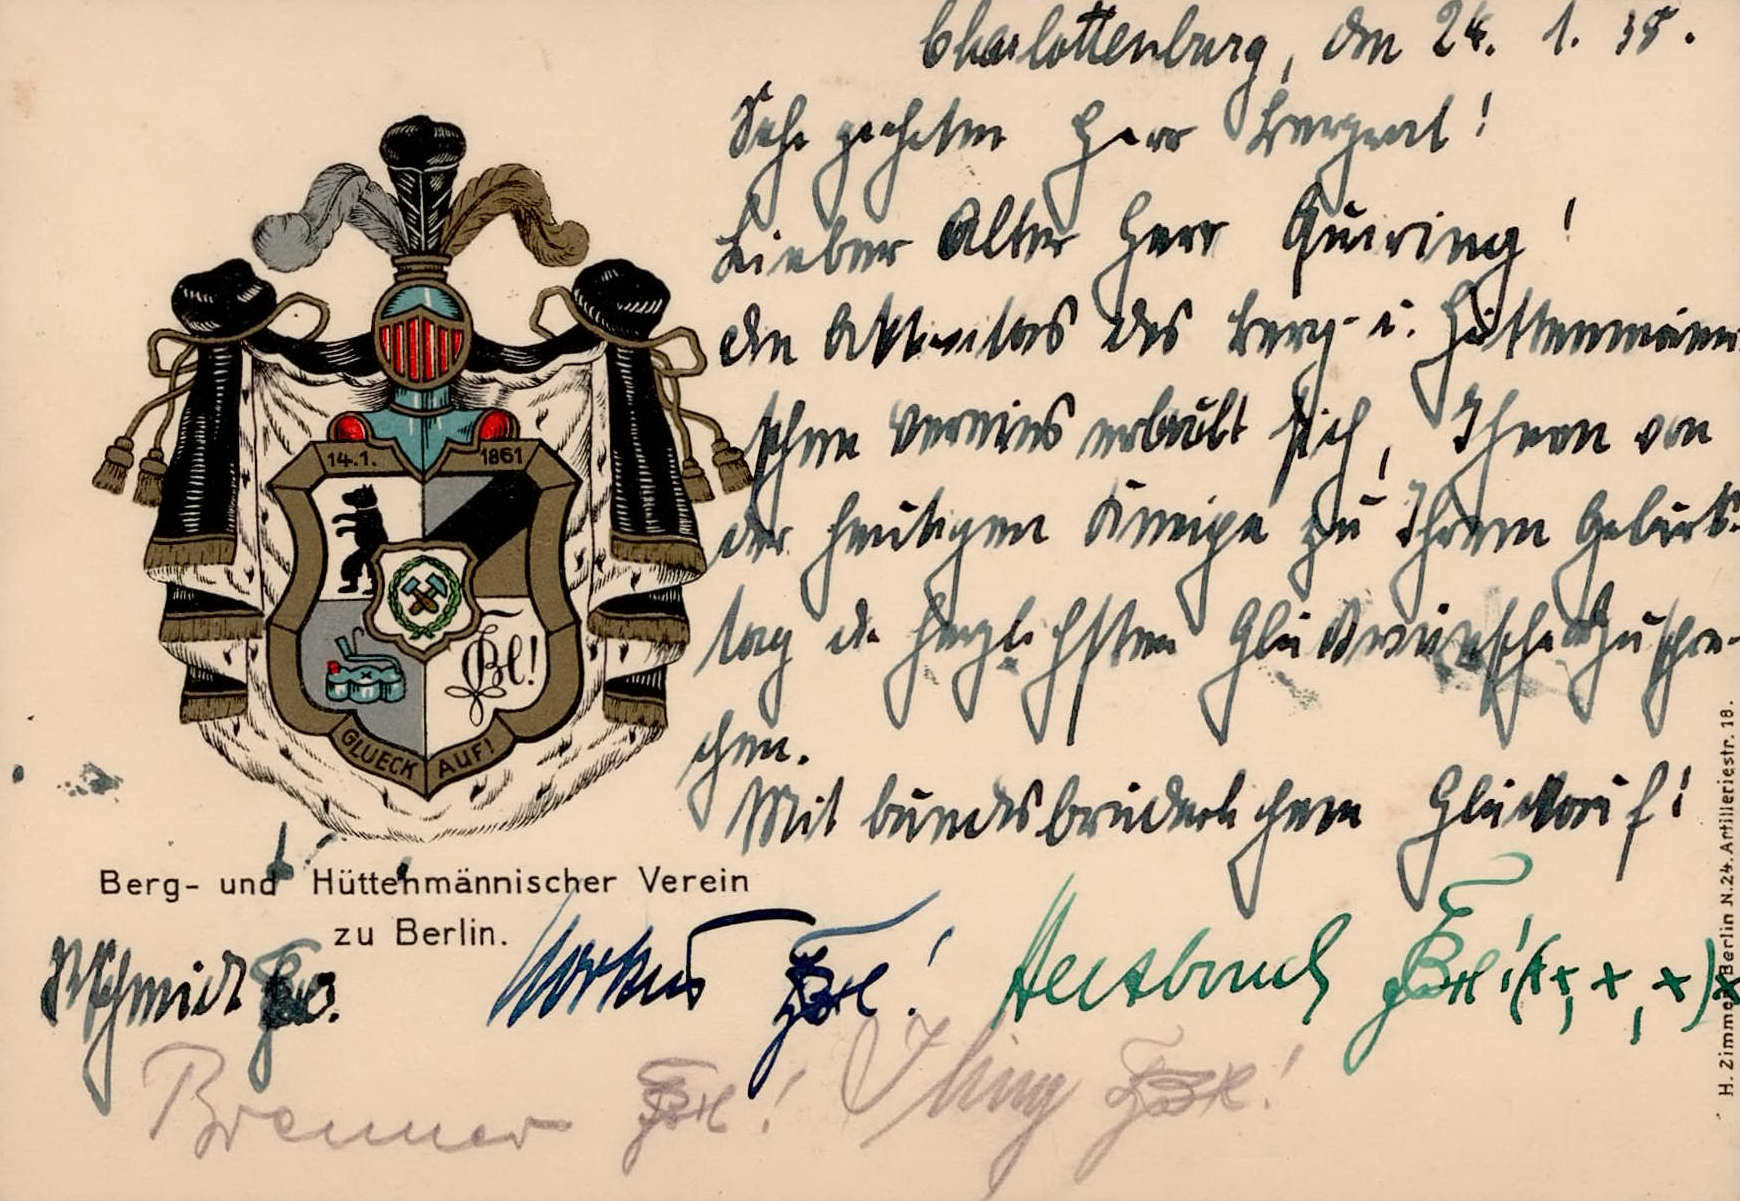 Charlottenburg, den 24. 1. 38.
Sehr geehrter Herr Bergrat!
Lieber Alter Herr Quiring!
Die Aktivitas des Berg- u. Hüttenmänni
schen Vereins erlaubt sich, Ihnen von
der heutigen Kneipe zu Ihrem Geburts-
tag die herzlichsten Glückwünsche auszuspre-
chen.
Mit bundesbrüderlichem Glückauf!
14.1. 1861
GLUECK AUF!
Berg- und Hüttenmännischer Verein
zu Berlin.
Schmidt
Markus
Brenner
H. Zimmer, Berlin N.24. Artilleriestr. 18.